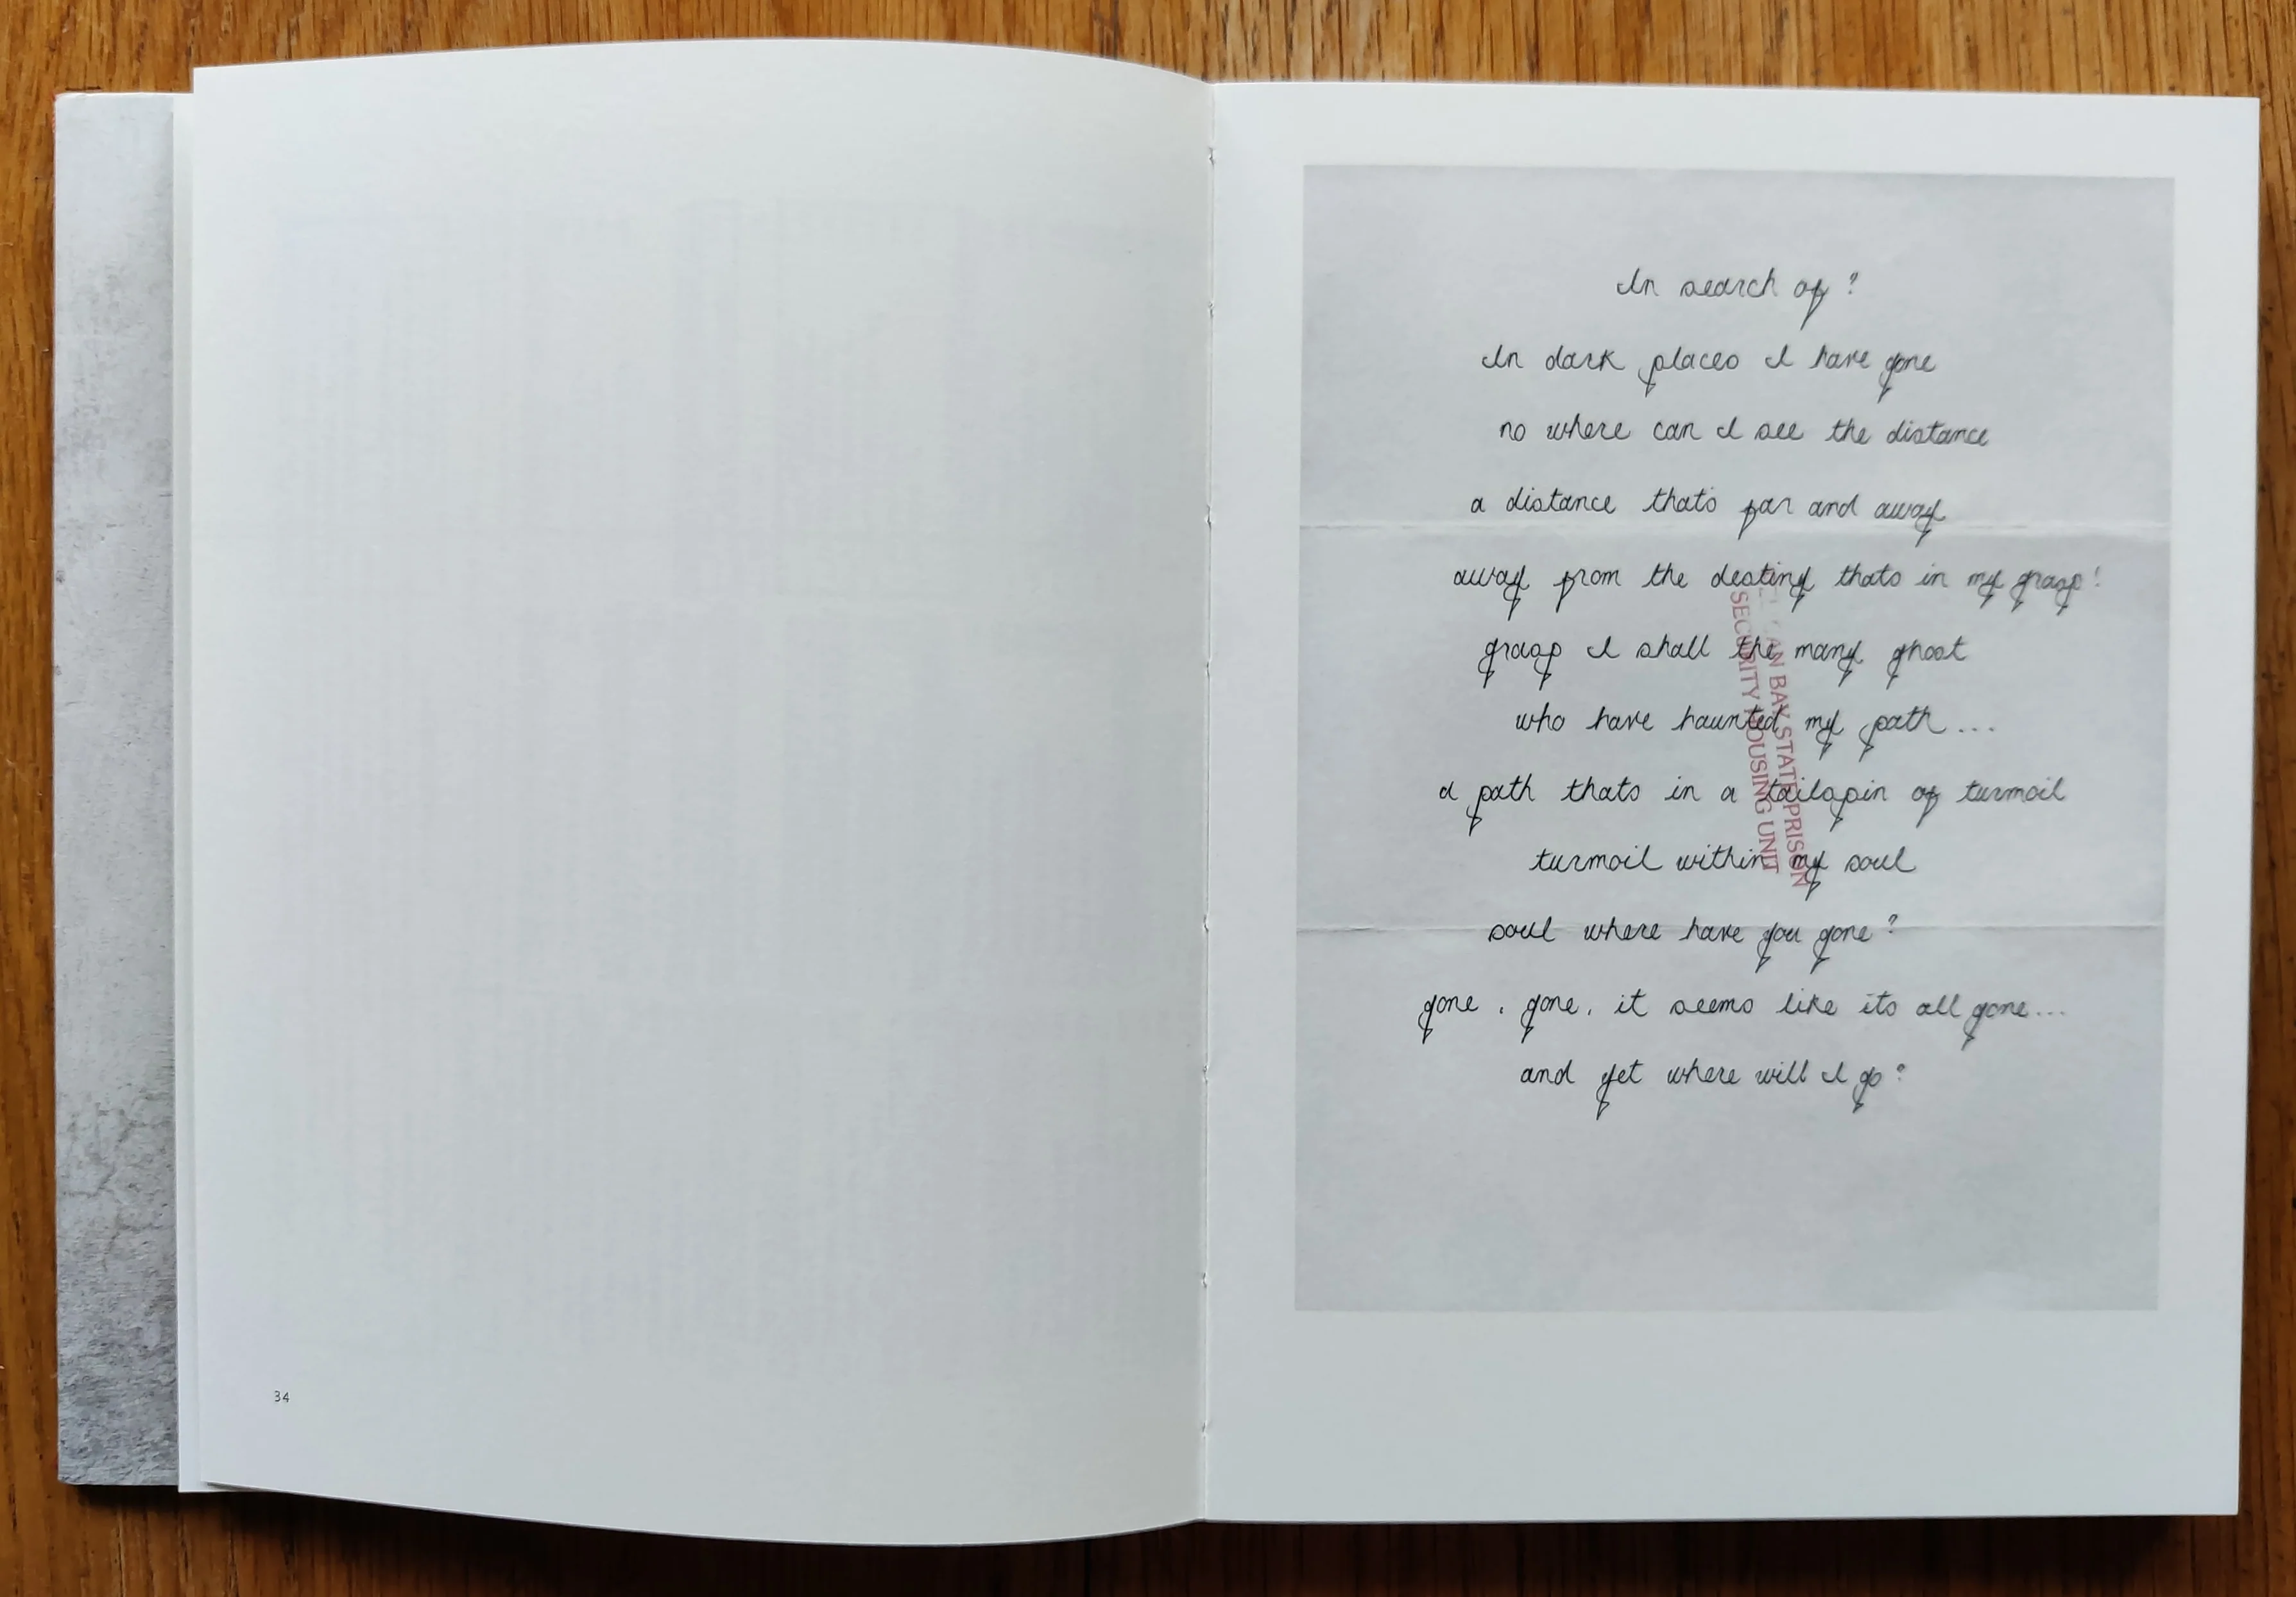 34
In search of?
In dark places I have gone
no where can I see the distance
a distance thats far and away
away from the destiny thats in my grasp!
grasp I shall the many ghost
who have haunted my path...
a path thats in a tailspin of turmoil
turmoil within my soul
soul where have you gone?
gone, gone, it seems like its all gone...
and yet where will I go?
AN BAY STATE PRISON
SECURITY HOUSING UNIT